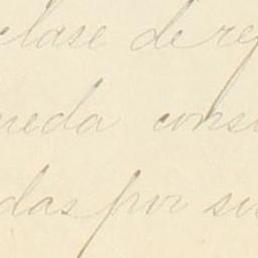 clase de re
ueda cons
das por su